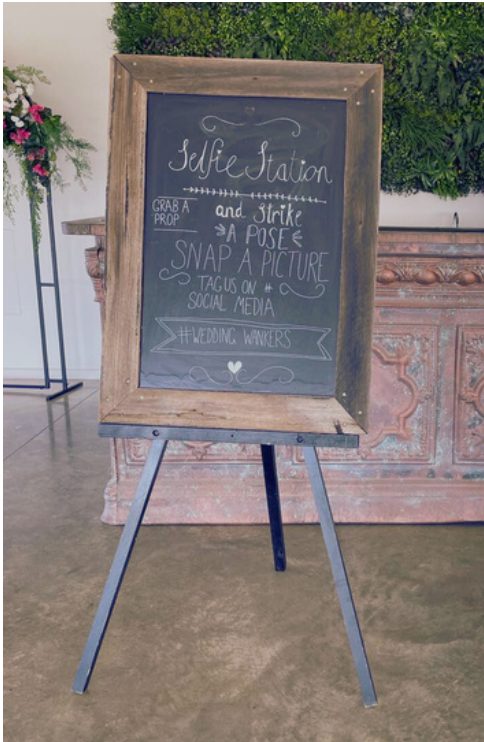 Selfie Station
GRAB A
PROP
and Strike
A POSE
SNAP A PICTURE
TAG US ON #
SOCIAL MEDIA
#WEDDING WANKERS